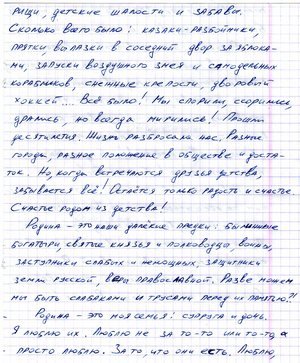 рищи, детские шалости и забавы.
Сколько всего было: казаки-разбойники,
прятки, вылазки в соседний двор за яблока-
ми, запуски воздушного змея и самодельных
корабликов, снежные крепости, дворовый
хоккей... Всё было! Мы спорили, ссорились,
дрались, но всегда мирились! Прошли
десятилетия. Жизнь разбросала нас. Разные
города, разное положение в обществе и доста-
ток. Но, когда встречаются друзья детства,
забывается всё! Остаётся только радость и счастье.
Счастье родом из детства!
Родина – это наши далёкие предки: былинные
богатыри, святые князья и полководцы, воины,
заступники слабых и немощных, защитники
земли русской, веры православной. Разве можем
мы быть слабаками и трусами перед их памятью?!
Родина – это моя семья: супруга и дочь.
Я люблю их. Люблю не за то-то или то-то, а
просто люблю. За то, что они есть. Люблю,